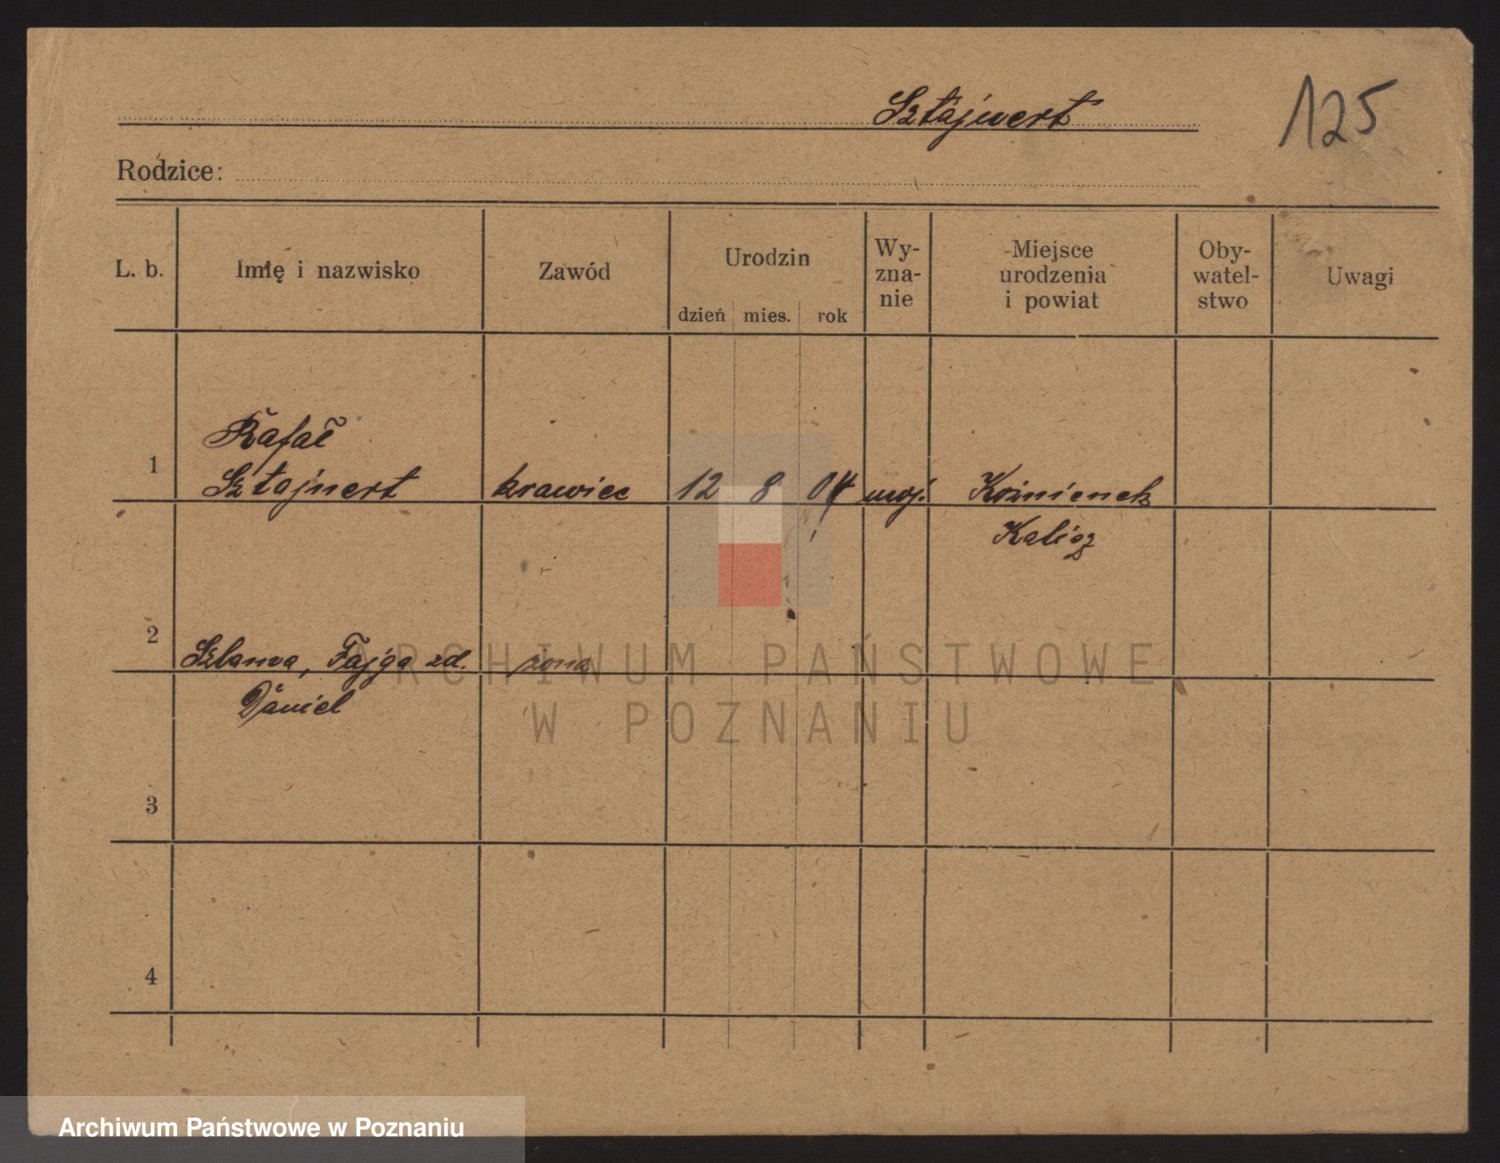 Sztajnert
125
Rodzice:
L. b.
Imię i nazwisko
Zawód
Urodzin
dzień mies. rok
Wy-
zna-
nie
Miejsce
urodzenia
i powiat
Oby-
watel-
stwo
Uwagi
1
Rafał
Sztajnert
krawiec
12
8
04
moj.
Koźminek
Kalisz
2
Szlama, Fajga zd.
żona
Daniel
3
4
ARCHIWUM PAŃSTWOWE
W POZNANIU
Archiwum Państwowe w Poznaniu